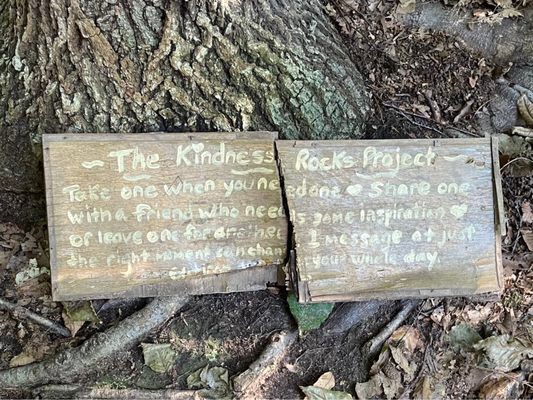 ~ The Kindness Rocks Project ~
Take one when you need one ♥ Share one
with a friend who needs some inspiration ♥
or leave one for another. 1 message at just
the right moment can change your whole day.